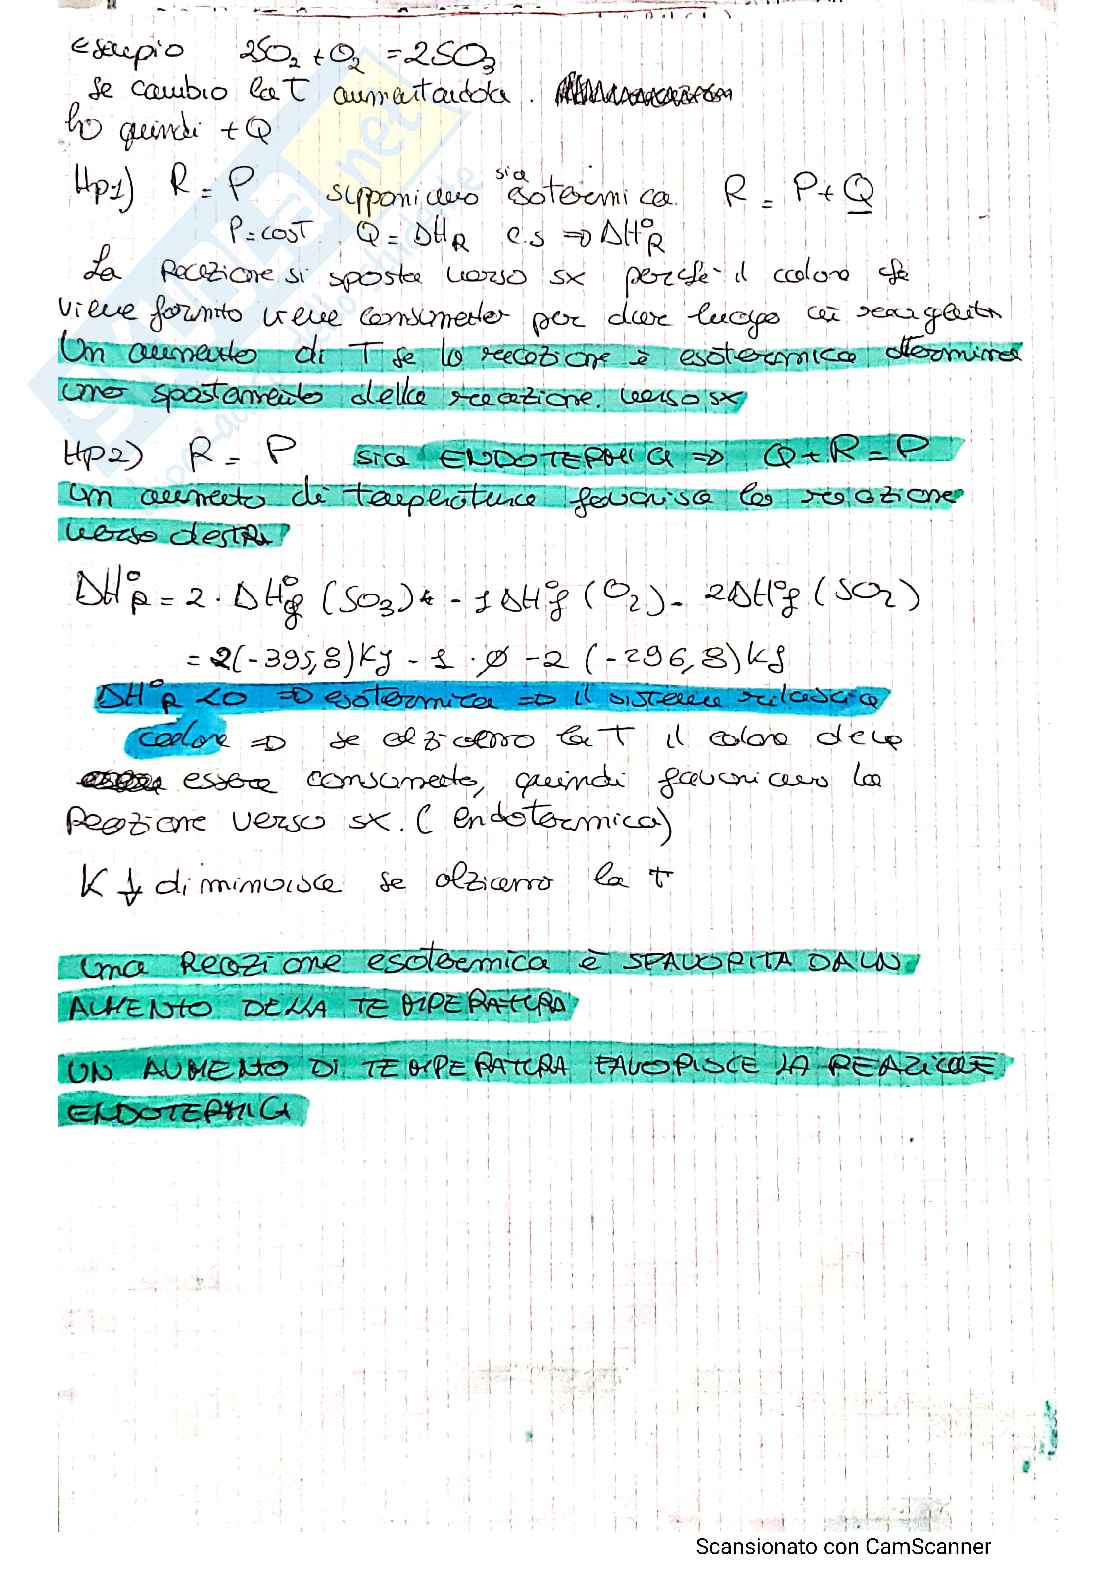 esempio 2SO₂ + O₂ = 2SO₃
se cambio la T aumentandola.
ho quindi + Q
Hp1) R = P supponiamo sia esotermica R = P + Q
P=cost. Q = ΔH_R c.s ⇒ ΔH°_R
La reazione si sposta verso sx perché il calore che
viene fornito viene consumato per dar luogo ai reagenti
Un aumento di T se la reazione è esotermica determina
uno spostamento della reazione verso sx
Hp2) R = P sia ENDOTERMICA ⇒ Q + R = P
un aumento di temperatura favorisce la reazione
verso destra
ΔH°_R = 2 · ΔH°f (SO₃) - 1 ΔH°f (O₂) - 2ΔH°f (SO₂)
= 2(-395,8)kJ - 1 · ∅ - 2 (-296,8)kJ
ΔH°_R < 0 ⇒ esotermica ⇒ il sistema rilascia
calore ⇒ se alziamo la T il calore deve
essere consumato, quindi favoriamo la
Reazione verso sx. (endotermica)
K ↓ diminuisce se alziamo la t
Una Reazione esotermica è SFAVORITA DA UN
AUMENTO DELLA TEMPERATURA
UN AUMENTO DI TEMPERATURA FAVORISCE LA REAZIONE
ENDOTERMICA
Scansionato con CamScanner